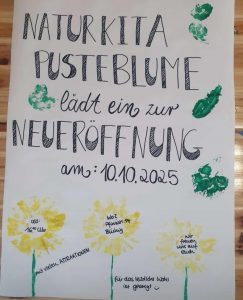 NATURKITA
PUSTEBLUME
lädt ein zur
NEUERÖFFNUNG
am: 10.10.2025
16⁰⁰ Uhr
mit vielen ATTRAKTIONEN
Wo?
wir
freuen
uns auf
Euch
für das leibliche Wohl
ist gesorgt